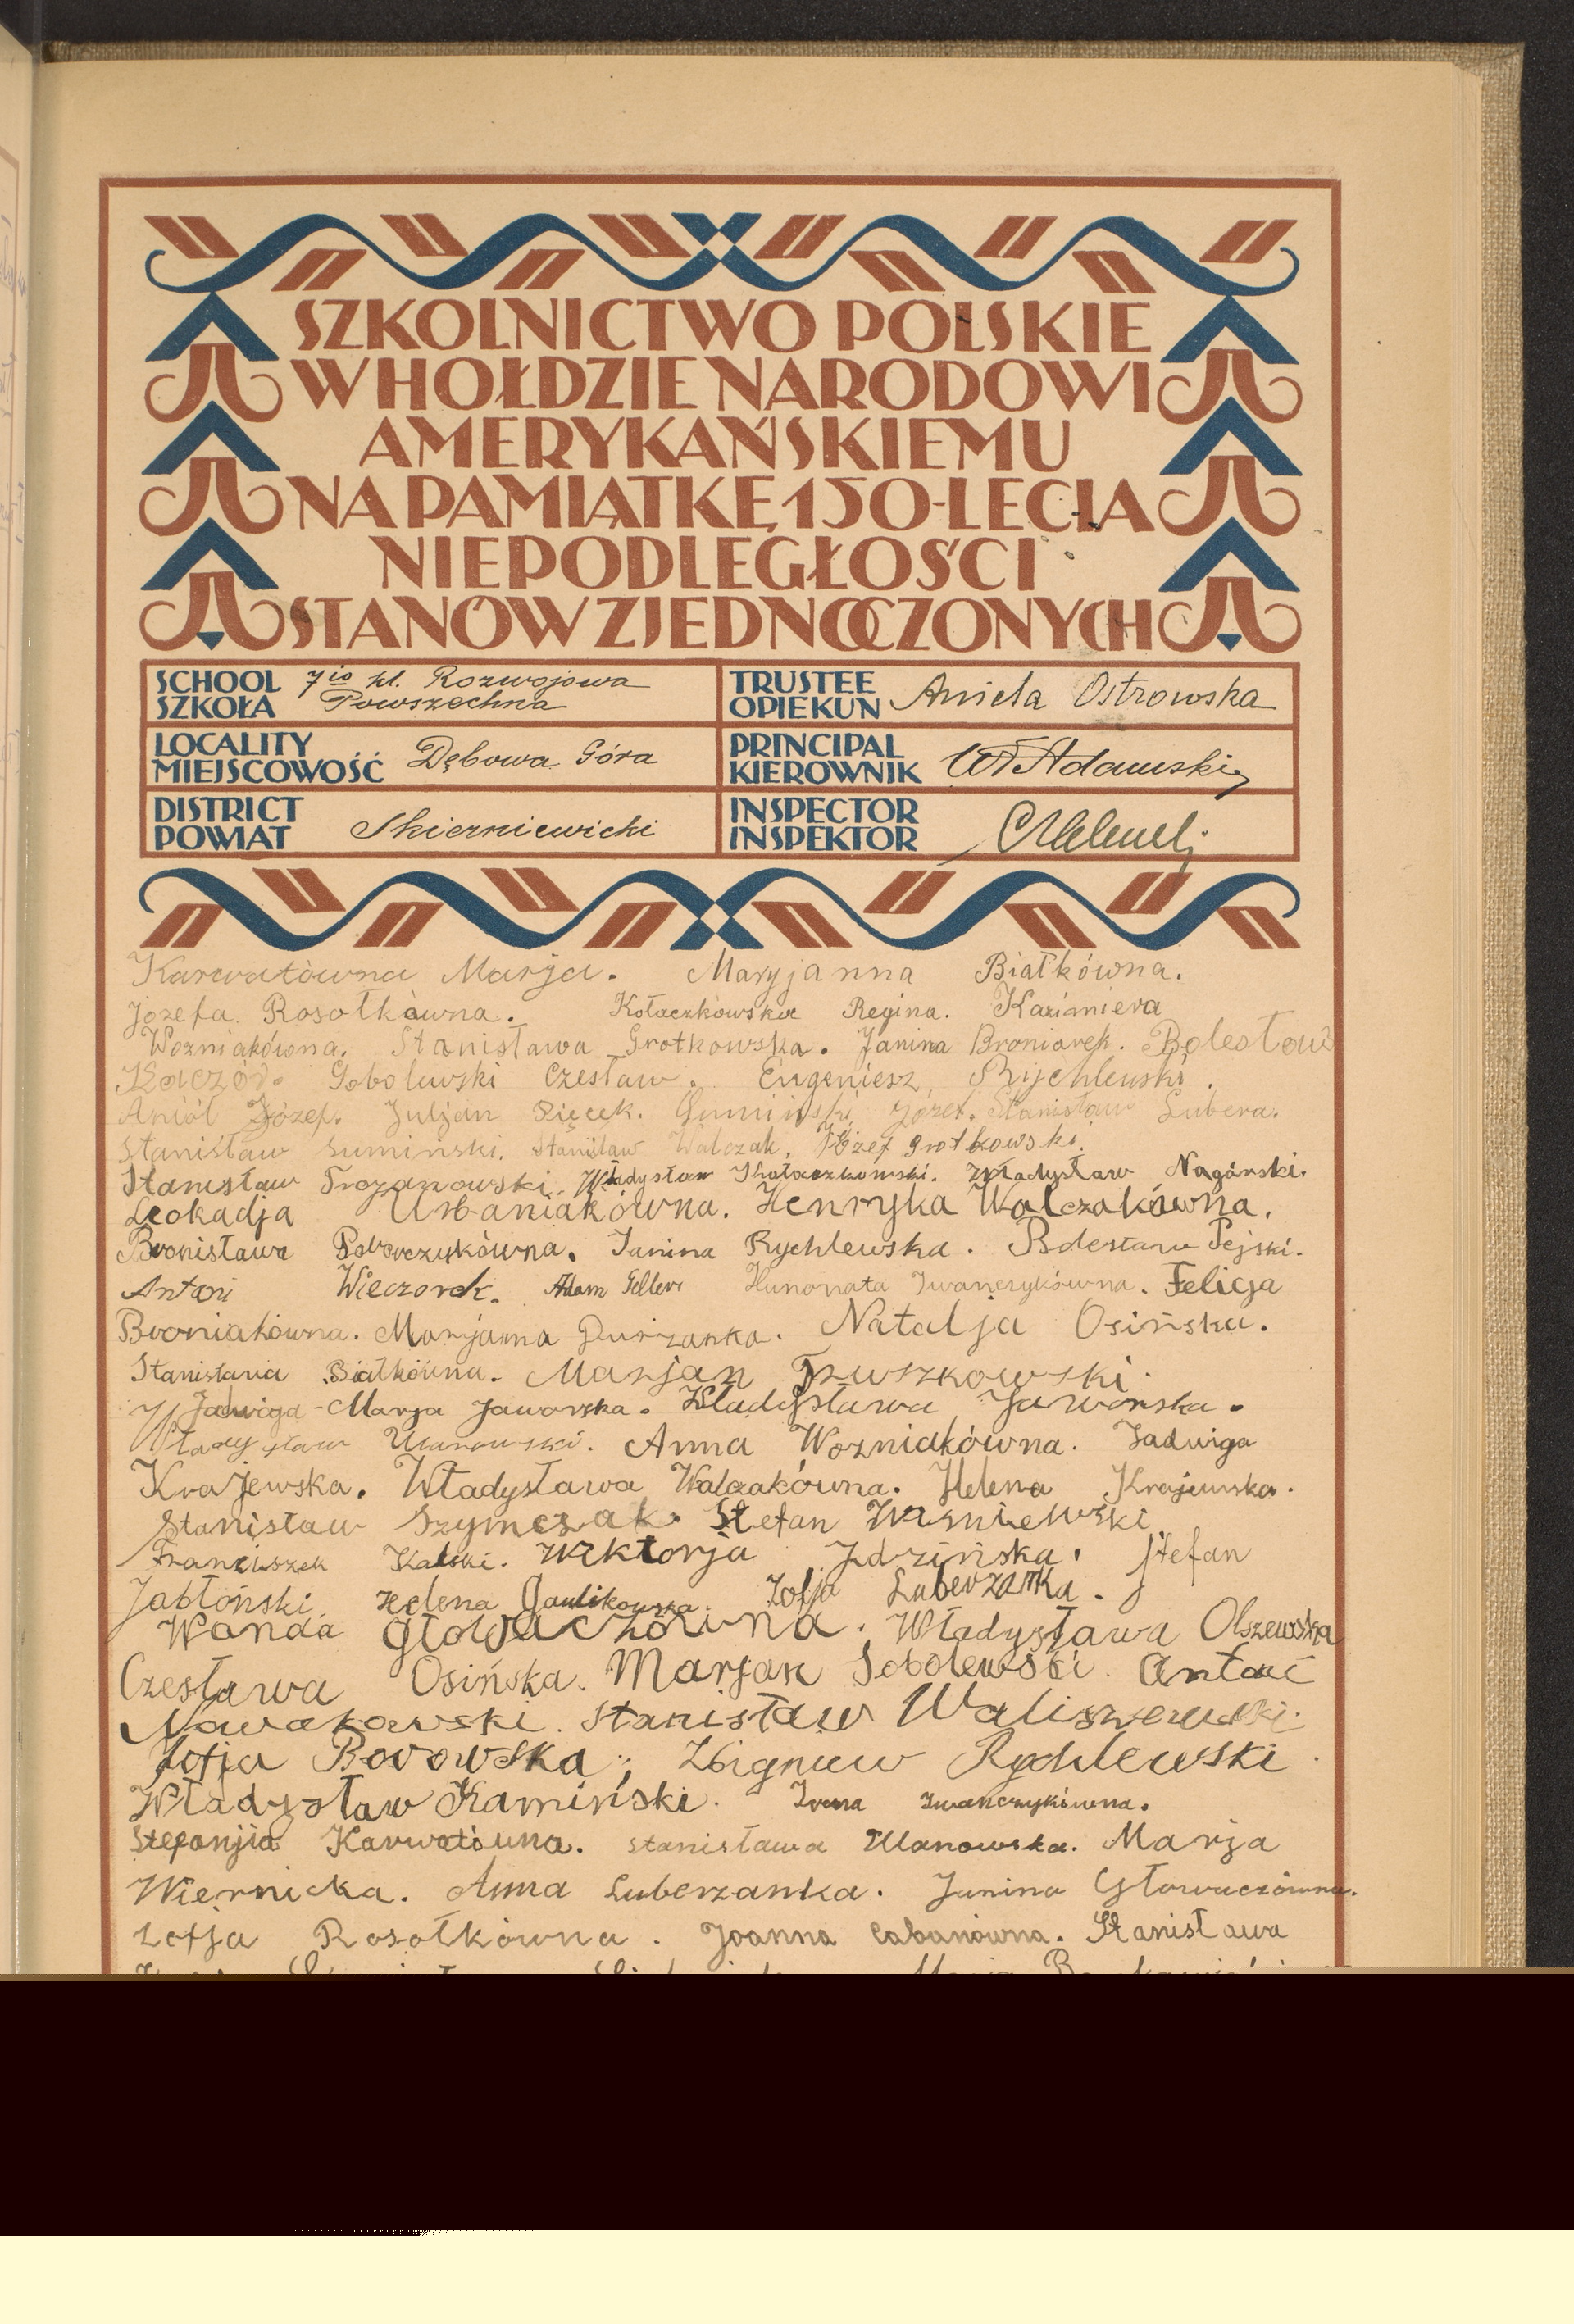 SZKOLNICTWO POLSKIE
W HOŁDZIE NARODOWI
AMERYKAŃSKIEMU
NA PAMIĄTKĘ 150-LECIA
NIEPODLEGŁOŚCI
STANÓW ZJEDNOCZONYCH
SCHOOL SZKOŁA 7io kl. Rozwojowa Powszechna
TRUSTEE OPIEKUN Aniela Ostrowska
LOCALITY MIEJSCOWOŚĆ Dębowa Góra
PRINCIPAL KIEROWNIK Wł Adamski
DISTRICT POWIAT Skierniewicki
INSPECTOR INSPEKTOR
Karwatówna Marja. Maryjanna Białkówna.
Józefa Rosołkówna. Kołaczkowska Regina. Kazimiera
Wozniakówna. Stanisława Grotkowska. Janina Broniarek. Bolesław
Kaczór. Sobolewski Czesław. Eugeniesz Rychlewski.
Aniół Józef. Juljan Pięcek. Sumiński Józef. Stanisław Lubera.
Stanisław Sumiński. Stanisław Walczak. Józef Grotkowski.
Stanisław Trojanowski. Władysław Kołaczkowski. Władysław Nagórski.
Leokadja Urbaniakówna. Henryka Walczakówna.
Bronisława Janina Rychlewska. Bolesław Pejski.
Antoni Wieczorek. Adam Geller Hunonata Iwanczykówna. Felicja
Broniakówna. Marjanna Durzanka. Natalja Osińska.
Stanisława Białkówna. Marjan Truszkowski.
Jadwiga-Marja Jaworska. Władysława Jaworska.
Władysław Ulanowski. Anna Wozniakówna. Jadwiga
Krajewska. Władysława Walczakówna. Helena Krajewska.
Stanisław Szymczak. Stefan Wisniewski
Franciszek Kalski. Wiktorja Idzińska. Stefan
Jabłoński. Helena Gawlikowska. Zofja Luberzanka.
Wanda Głowaczówna. Władysława Olszewska
Czesława Osińska. Marjan Sobolewski. Antoni
Nowakowski. Stanisław Waliszewski.
Zofja Borowska. Zbigniew Rychlewski.
Władysław Kamiński. Irena Iwanczykówna.
Stefanjia Karwatówna. Stanisława Ulanowska. Marja
Wiernicka. Anna Luberzanka. Janina Głowaczówna.
Zofja Rosołkówna. Joanna Cabanówna. Stanisława